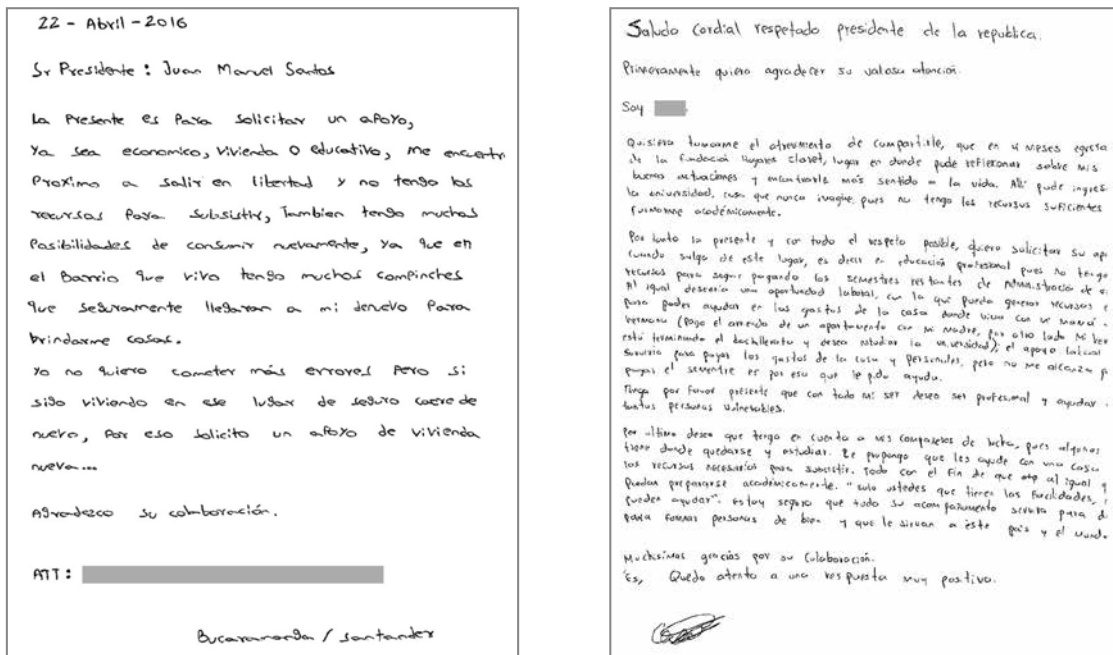 22 - Abril - 2016
Sr Presidente : Juan Manuel Santos
La Presente es Para Solicitar un aPoyo,
Ya sea economico, Vivienda o educativo, me encuentr
Proximo a salir en libertad y no tengo los
recursos Para Subsistir, Tambien tengo muchas
Posibilidades de consumir nuevamente, ya que en
el Barrio que vivo tengo muchos compinches
que seguramente llegaran a mi denuevo Para
brindarme cosas.
Yo no quiero cometer más errores Pero si
sigo viviendo en ese lugar de seguro caere de
nuevo, Por eso solicito un aPoyo de vivienda
nueva...
Agradezco su colaboración.
ATT :
Bucaramanga / santander
Saludo Cordial respetado presidente de la republica.
Primeramente quiero agradecer su valiosa atención.
Soy
Quisiera tomarme el atrevimiento de compartirle, que en 4 meses egresa
de la fundación Hogares claret, lugar en donde pude reflexionar sobre mis
buenas actuaciones y encontrarle más sentido a la vida. Allí pude ingres
la universidad, cosa que nunca imagine, pues no tengo los recursos suficientes
formarme académicamente.
Por tanto la presente y con todo el respeto posible, quiero solicitar su apo
cuando salga de este lugar, es decir en educación profesional pues no tengo
recursos para seguir pagando los semestres restantes de Administración de
Al igual desearía una oportunidad laboral, con la que pueda generar recursos
para poder ayudar en los gastos de la casa donde vivo con mi mamá
hermano (Pago el arriendo de un apartamento con mi madre, por otro lado mi her
está terminando el bachillerato y desea estudiar la universidad); el apoyo laboral
serviria para pagar los gastos de la casa y personales, pero no me alcanza p
pagar el semestre es por eso que le pido ayuda.
Tenga por favor presente que con todo mi ser deseo ser profesional y ayudar
tantas personas vulnerables.
Por ultimo deseo que tenga en cuenta a mis compañeros de lucha, pues algunos
tiene donde quedarse y estudiar. Le propongo que les ayude con una casa
los recursos necesarios para subsistir. Todo con el fin de que al igual q
puedan prepararse académicamente. "solo ustedes que tienen las facilidades,
pueden ayudar". Estoy seguro que todo su acompañamiento servira para d
para formar personas de bien y que le sirvan a este país y el mundo
Muchisimas gracias por su Colaboración.
Es, Quedo atento a una respuesta muy positiva.